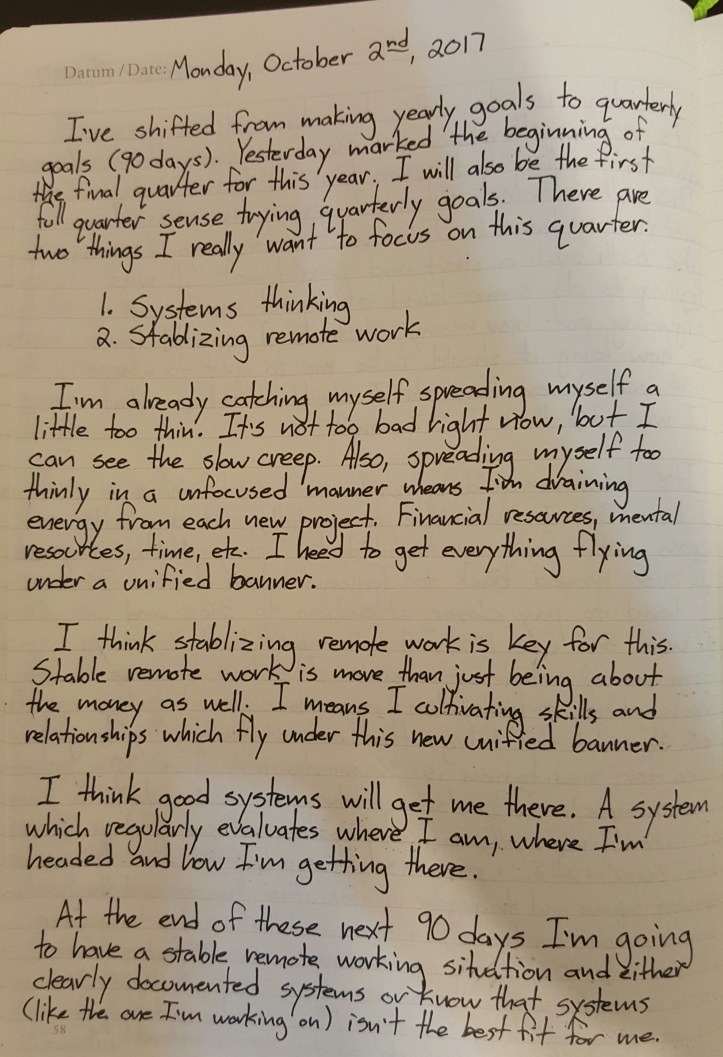 Datum / Date: Monday, October 2nd, 2017
I've shifted from making yearly goals to quarterly
goals (90 days). Yesterday marked the beginning of
the final quarter for this year. I will also be the first
full quarter sense trying quarterly goals. There are
two things I really want to focus on this quarter.
1. Systems thinking
2. Stablizing remote work
I'm already catching myself spreading myself a
little too thin. It's not too bad right now, but I
can see the slow creep. Also, spreading myself too
thinly in a unfocused manner means I'm draining
energy from each new project. Financial resources, mental
resources, time, etc. I need to get everything flying
under a unified banner.
I think stablizing remote work is key for this.
Stable remote work is more than just being about
the money as well. I means I cultivating skills and
relationships which fly under this new unified banner.
I think good systems will get me there. A system
which regularly evaluates where I am, where I'm
headed and how I'm getting there.
At the end of these next 90 days I'm going
to have a stable remote working situation and either
clearly documented systems or know that systems
(like the one I'm working on) isn't the best fit for me.
58